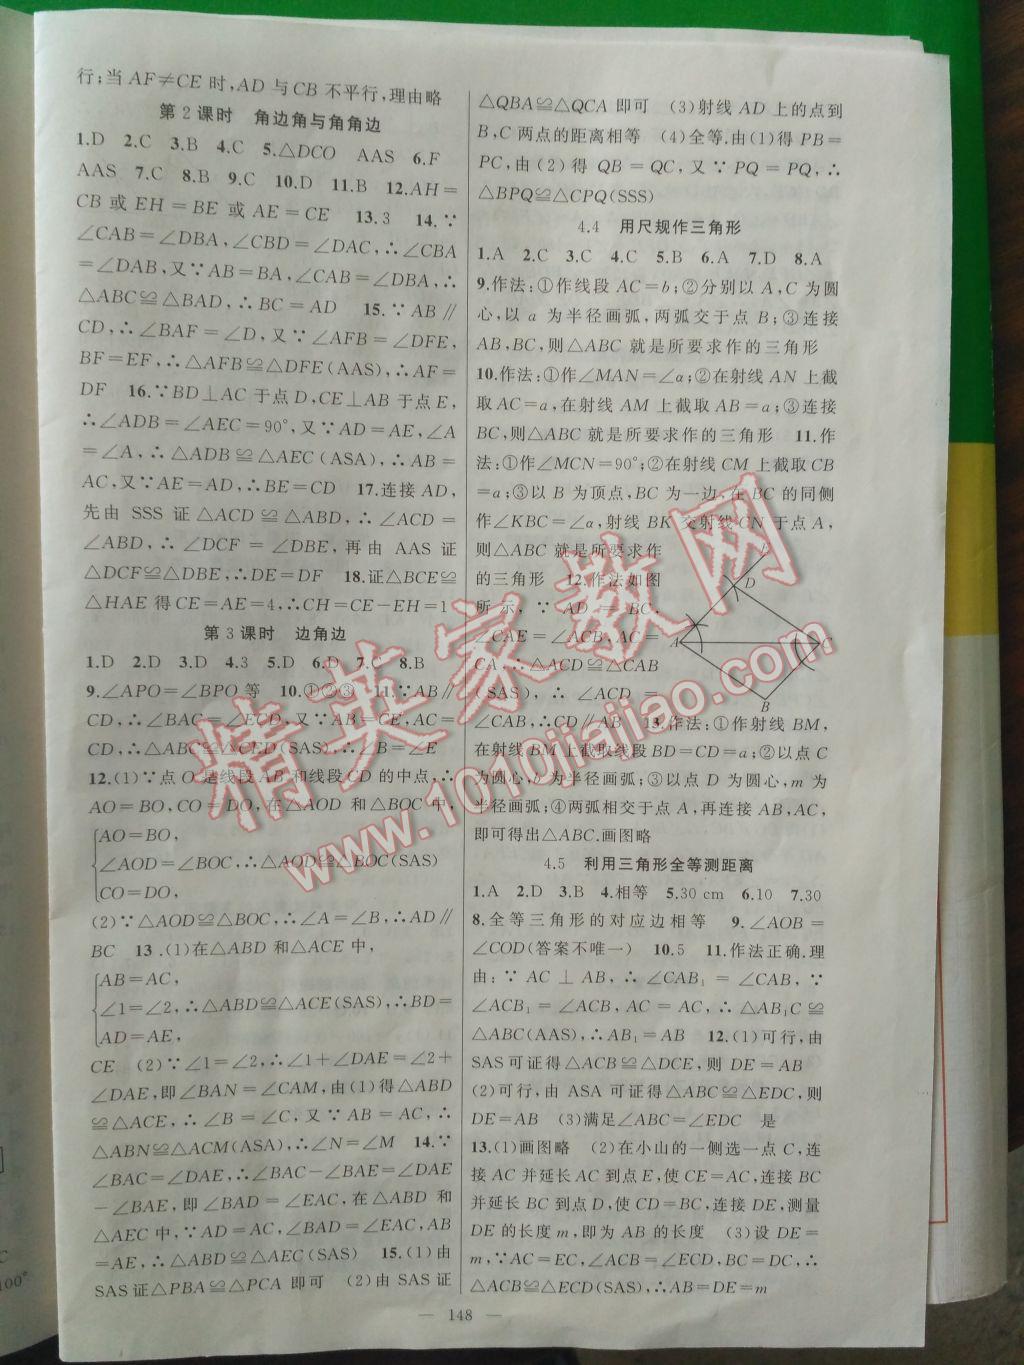 行;当 AF≠CE 时,AD 与 CB 不平行,理由略
第 2 课时　角边角与角角边
1.D　2.C　3.B　4.C　5.△DCO　AAS　6.F
AAS　7.C　8.B　9.C　10.D　11.B　12.AH=
CB 或 EH=BE 或 AE=CE　13.3　14.∵
∠CAB=∠DBA,∠CBD=∠DAC,∴∠CBA
=∠DAB,又∵AB=BA,∠CAB=∠DBA,∴
△ABC≌△BAD,∴BC=AD　15.∵AB∥
CD,∴∠BAF=∠D,又∵∠AFB=∠DFE,
BF=EF,∴△AFB≌△DFE(AAS),∴AF=
DF　16.∵BD⊥AC 于点 D,CE⊥AB 于点 E,
∴∠ADB=∠AEC=90°,又∵AD=AE,∠A
=∠A,∴△ADB≌△AEC(ASA),∴AB=
AC,又∵AE=AD,∴BE=CD　17.连接 AD,
先由 SSS 证△ACD≌△ABD,∴∠ACD=
∠ABD,∴∠DCF=∠DBE,再由 AAS 证
△DCF≌△DBE,∴DE=DF　18.证△BCE≌
△HAE 得 CE=AE=4,∴CH=CE-EH=1
第 3 课时　边角边
1.D　2.D　3.D　4.3　5.D　6.D　7.C　8.B
9.∠APO=∠BPO 等　10.①②③　11.∵AB∥
CD,∴∠BAC=∠ECD,又∵AB=CE,AC=
CD,∴△ABC≌△CED(SAS),∴∠B=∠E
12.(1)∵点 O 是线段 AB 和线段 CD 的中点,∴
AO=BO,CO=DO,在△AOD 和△BOC 中,
AO=BO,
∠AOD=∠BOC,∴△AOD≌△BOC(SAS)
CO=DO,
(2)∵△AOD≌△BOC,∴∠A=∠B,∴AD∥
BC　13.(1)在△ABD 和△ACE 中,
AB=AC,
∠1=∠2,∴△ABD≌△ACE(SAS),∴BD=
AD=AE,
CE　(2)∵∠1=∠2,∴∠1+∠DAE=∠2+
∠DAE,即∠BAN=∠CAM,由(1)得△ABD
≌△ACE,∴∠B=∠C,又∵AB=AC,∴
△ABN≌△ACM(ASA),∴∠N=∠M　14.∵
∠BAC=∠DAE,∴∠BAC-∠BAE=∠DAE
-∠BAE,即∠BAD=∠EAC,在△ABD 和
△AEC 中,∵AD=AC,∠BAD=∠EAC,AB
=AE,∴△ABD≌△AEC(SAS)　15.(1)由
SAS 证△PBA≌△PCA 即可　(2)由 SAS 证
△QBA≌△QCA 即可　(3)射线 AD 上的点到
B,C 两点的距离相等　(4)全等.由(1)得 PB=
PC,由(2)得 QB=QC,又∵PQ=PQ,∴
△BPQ≌△CPQ(SSS)
4.4　用尺规作三角形
1.A　2.C　3.C　4.C　5.B　6.A　7.D　8.A
9.作法:①作线段 AC=b;②分别以 A,C 为圆
心,以 a 为半径画弧,两弧交于点 B;③连接
AB,BC,则△ABC 就是所要求作的三角形
10.作法:①作∠MAN=∠α;②在射线 AN 上截
取 AC=a,在射线 AM 上截取 AB=a;③连接
BC,则△ABC 就是所要求作的三角形　11.作
法:①作∠MCN=90°;②在射线 CM 上截取 CB
=a;③以 B 为顶点,BC 为一边,在 BC 的同侧
作∠KBC=∠α,射线 BK 交射线 CN 于点 A,
则△ABC 就是所要求作
的三角形　12.作法如图
所示,∵AD=BC,
∠CAE=∠ACB,AC=
CA,∴△ACD≌△CAB
(SAS),∴∠ACD=
∠CAB,∴CD∥AB　13.作法:①作射线 BM,
在射线 BM 上截取线段 BD=CD=a;②以点 C
为圆心,b 为半径画弧;③以点 D 为圆心,m 为
半径画弧;④两弧相交于点 A,再连接 AB,AC,
即可得出△ABC.画图略
D
A
C
B
4.5　利用三角形全等测距离
1.A　2.D　3.B　4.相等　5.30 cm　6.10　7.30
8.全等三角形的对应边相等　9.∠AOB=
∠COD(答案不唯一)　10.5　11.作法正确.理
由:∵AC⊥AB,∴∠CAB₁=∠CAB,∵
∠ACB₁=∠ACB,AC=AC,∴△AB₁C≌
△ABC(AAS),∴AB₁=AB　12.(1)可行,由
SAS 可证得△ACB≌△DCE,则 DE=AB
(2)可行,由 ASA 可证得△ABC≌△EDC,则
DE=AB　(3)满足∠ABC=∠EDC　是
13.(1)画图略　(2)在小山的一侧选一点 C,连
接 AC 并延长 AC 到点 E,使 CE=AC,连接 BC
并延长 BC 到点 D,使 CD=BC,连接 DE,测量
DE 的长度 m,即为 AB 的长度　(3)设 DE=
m,∵AC=EC,∠ACB=∠ECD,BC=DC,∴
△ACB≌△ECD(SAS),∴AB=DE=m
— 148 —
精英家教网
www.1010jiajiao.com
C
100°